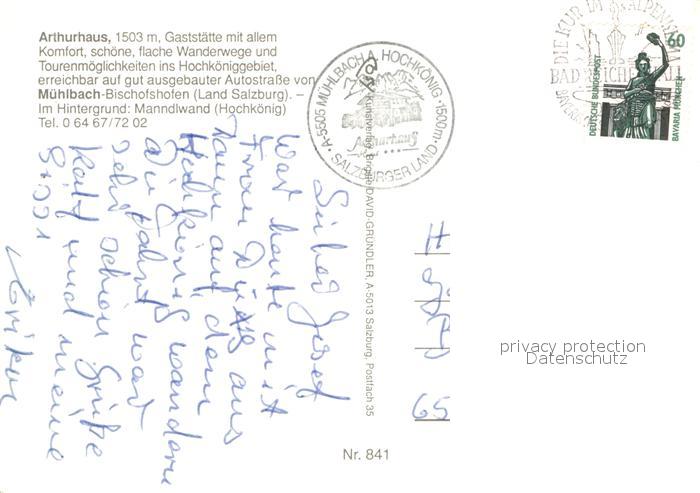 Arthurhaus, 1503 m, Gaststätte mit allem
Komfort, schöne, flache Wanderwege und
Tourenmöglichkeiten ins Hochköniggebiet,
erreichbar auf gut ausgebauter Autostraße von
Mühlbach-Bischofshofen (Land Salzburg). –
Im Hintergrund: Manndlwand (Hochkönig)
Tel. 0 64 67/72 02
A-5505 MÜHLBACH A. HOCHKÖNIG · 1500m ·
Arthurhaus
SALZBURGER LAND
DIE KUR IM ALPEN
BAD REICHENHALL
60
DEUTSCHE BUNDESPOST
BAYARIA MÜNCHEN
Kunstverlag Brigitte DAVID-GRÜNDLER, A-5013 Salzburg, Postfach 35
Lieber Josef
War heute mit
Frau aus
auf dem
Hochkönig wandern
die Fahrt war
sehr schön Grüße
und meine
Erika
H
65
privacy protection
Datenschutz
Nr. 841